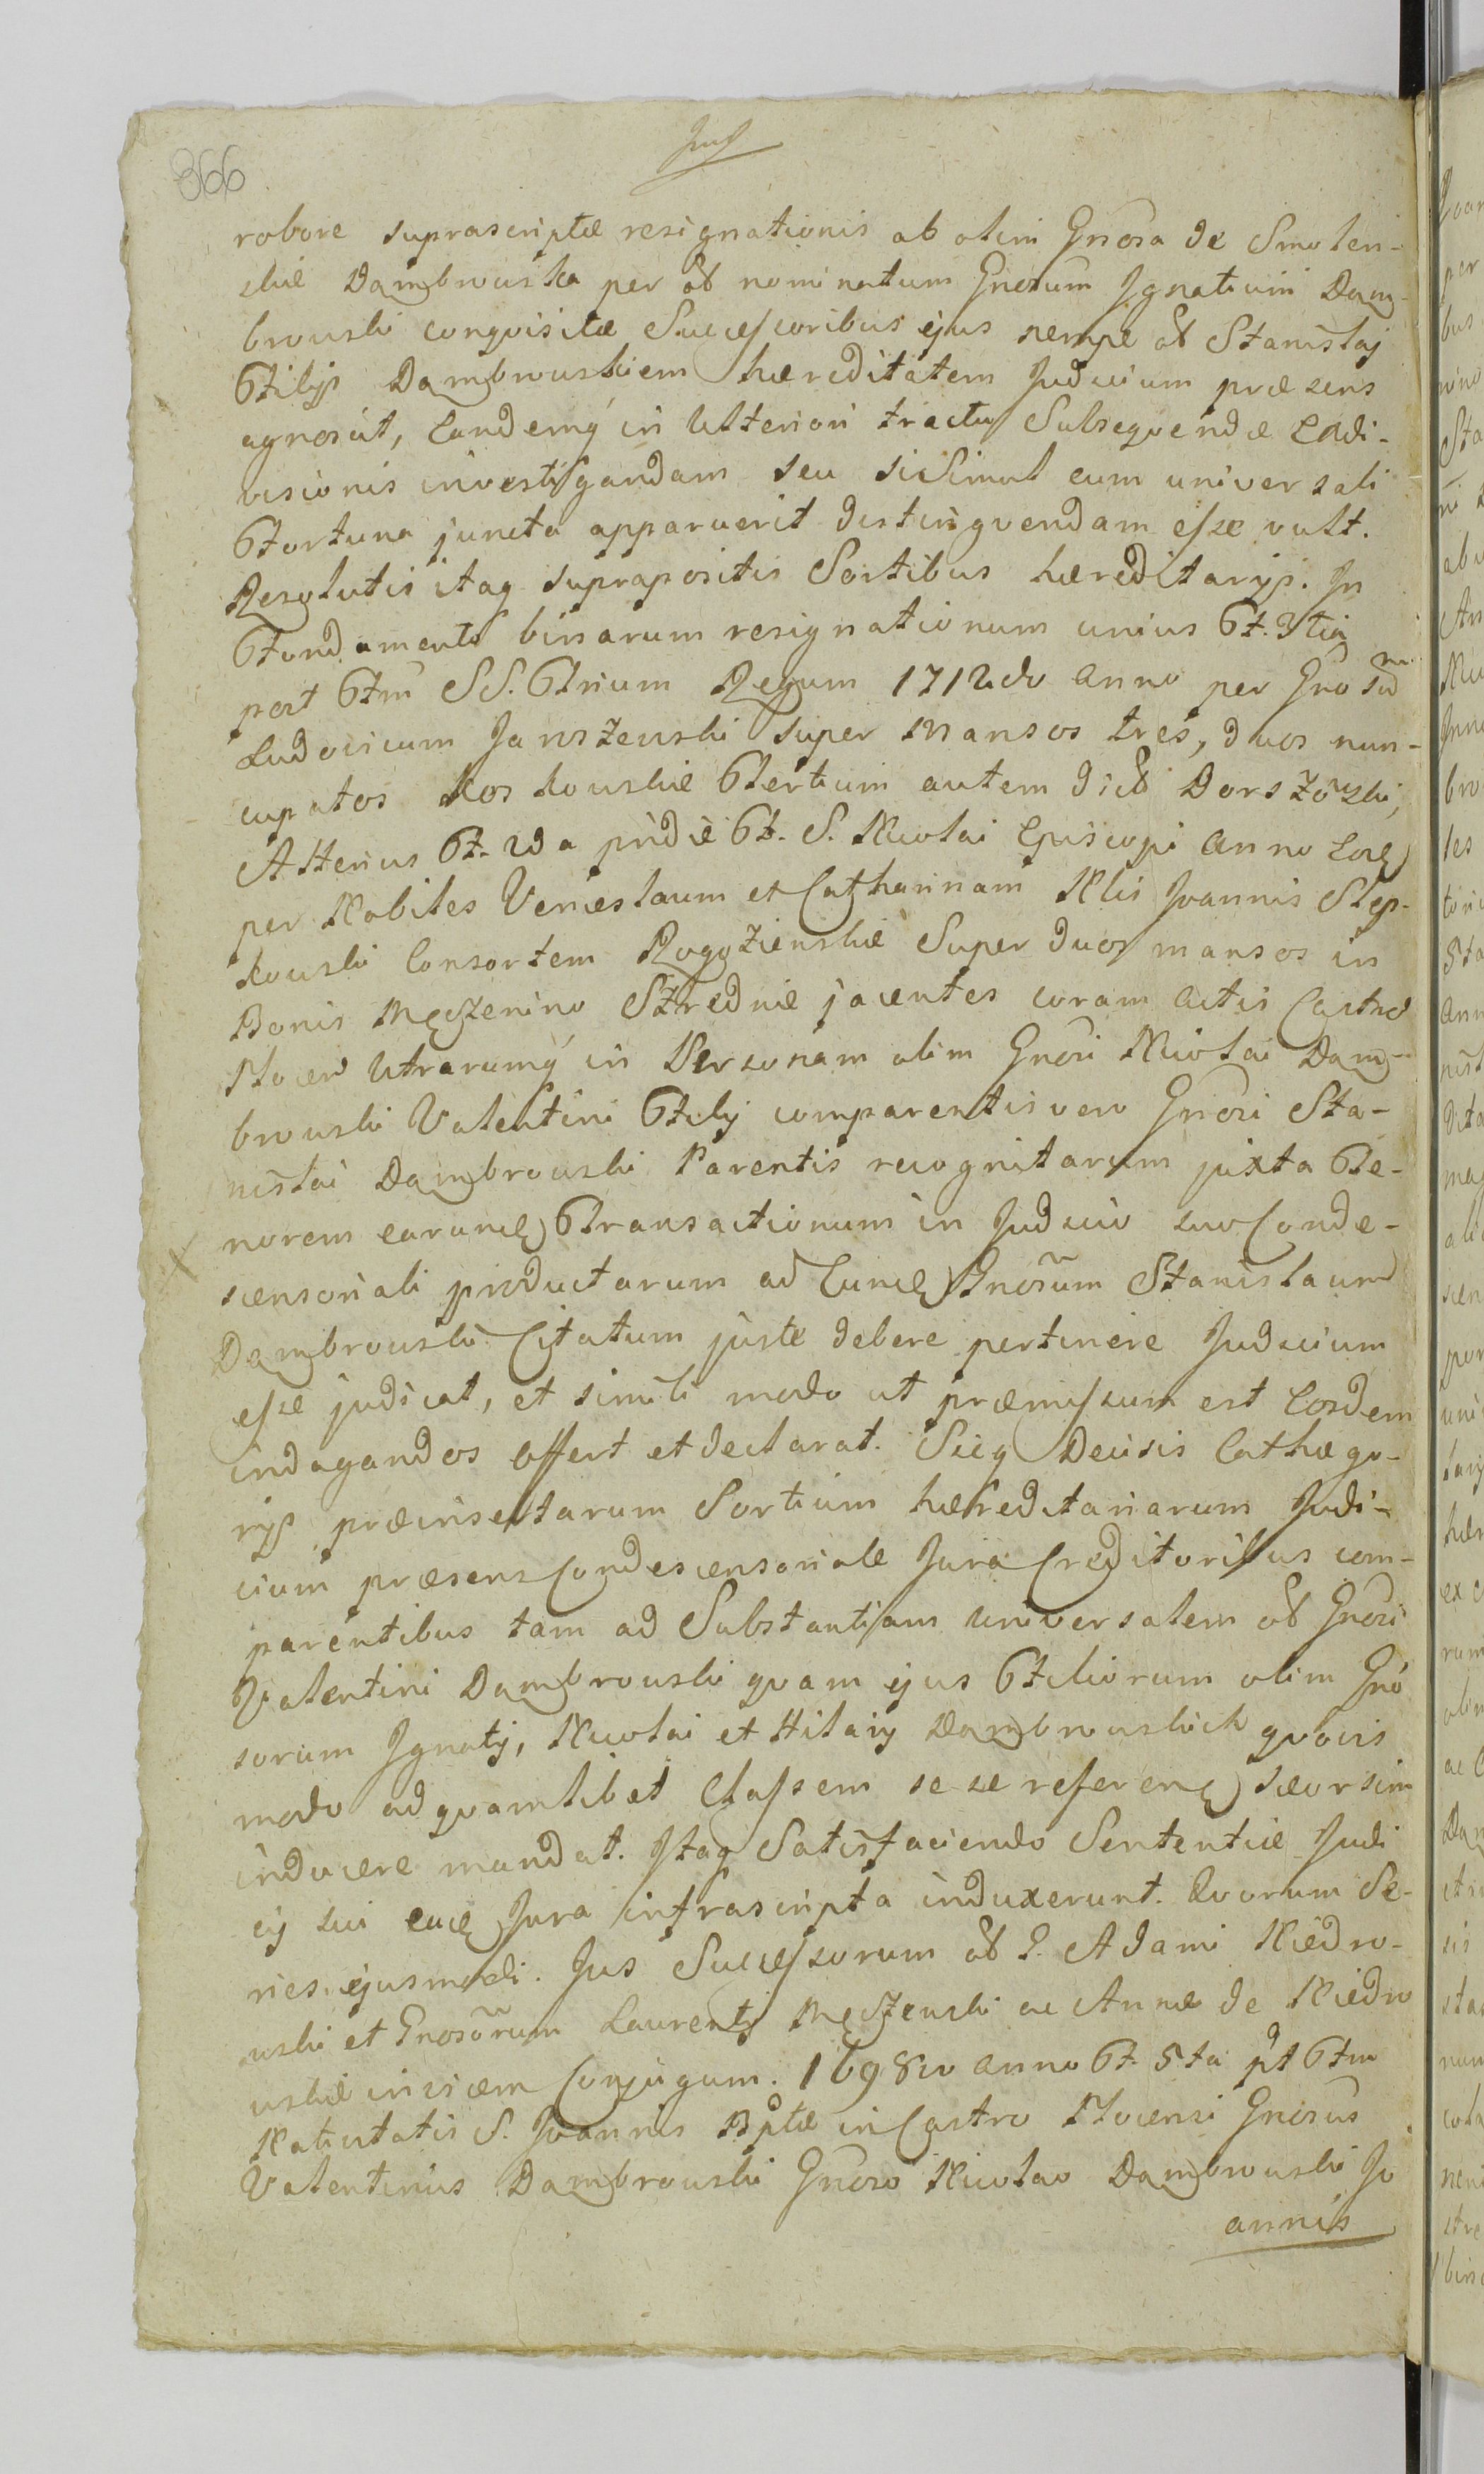 366
robore suprascriptæ resignationis ab olim Gnosa de Smolen-
skie Dambrowska per od nominatum Gnosum Ignatium Dam-
browski conqvisitæ Successoribus ejus nempe od Stanislaj
Filijs Dambrowskiem hæreditatem Judicium præsens
agnoscit, Eandemq in Ulteriori tractu Subseqvendæ Exdi-
visionis investigandam seu si Simul cum universali
Fortuna juncta apparuerit distingvendam esse vult.
Resolutis itaq suprapositis Sortibus hæreditarys. In
Fondamento binarum resignationum unius F. 3tia
post Ftm SS. Trium Regum 1712do Anno per Gnosum
Ludovicum Janszewski super mansos tres, duos nun-
cupatos Koskowskie Tertium autem dict Dorszowski,
Alterius F. 2da pridie F. S. Nicolai Episcopi Anno Eod
per Nobiles Venceslaum et Catharinam Nlis Joannis Slep-
kowski Consortem Rogozienskie Super duos mansos in
Bonis Męczenino Szrednie jacentes coram Actis Castren
Plocen Utrarumq in Personam olim Gnosi Nicolai Dam-
browski Valentini Filij comparentis vero Gnosi Sta-
nislai Dambrowski Parentis recognitarum juxta Te-
norem earund Transactionum in Judicio suo Conde-
scensoriali productarum ad Eund Gnosum Stanislaum
Dambrowski Citatum juste debere pertinere Judicium
esse judicat, et simili modo ut præmissum est Eosdem
indagandos offert et declarat. Sicq Decisis Cathego-
rijs præinsertarum Sortium hæreditariarum Judi-
cium præsens Condescensoriale Jura Creditoribus com-
parentibus tam ad Substantiam Universalem od Gnosi
Valentini Dambrowski qvam ejus Filiorum olim Gno
sorum Ignatij, Nicolai et Hilarij Dambrowskich qvovis
modo ad qvamlibet Classem se se referen seorsim
inducere mandat. Itaq Satisfaciendo Sententiæ Judi
cij sui Jura infrascripta induxerunt. Qvorum Se-
ries ejusmodi. Jus Successorum od G. Adami Niedro-
wski et Gnosorum Laurentij Męczenski ac Annæ de Niedro
wskie invicem Conjugum. 1698vo Anno F. 5ta pt Ftm
Nativitatis S. Joannis Bptæ in Castro Plocensi Gnosus
Valentinus Dambrowski Gnoso Nicolao Dambrowski Jo
annis